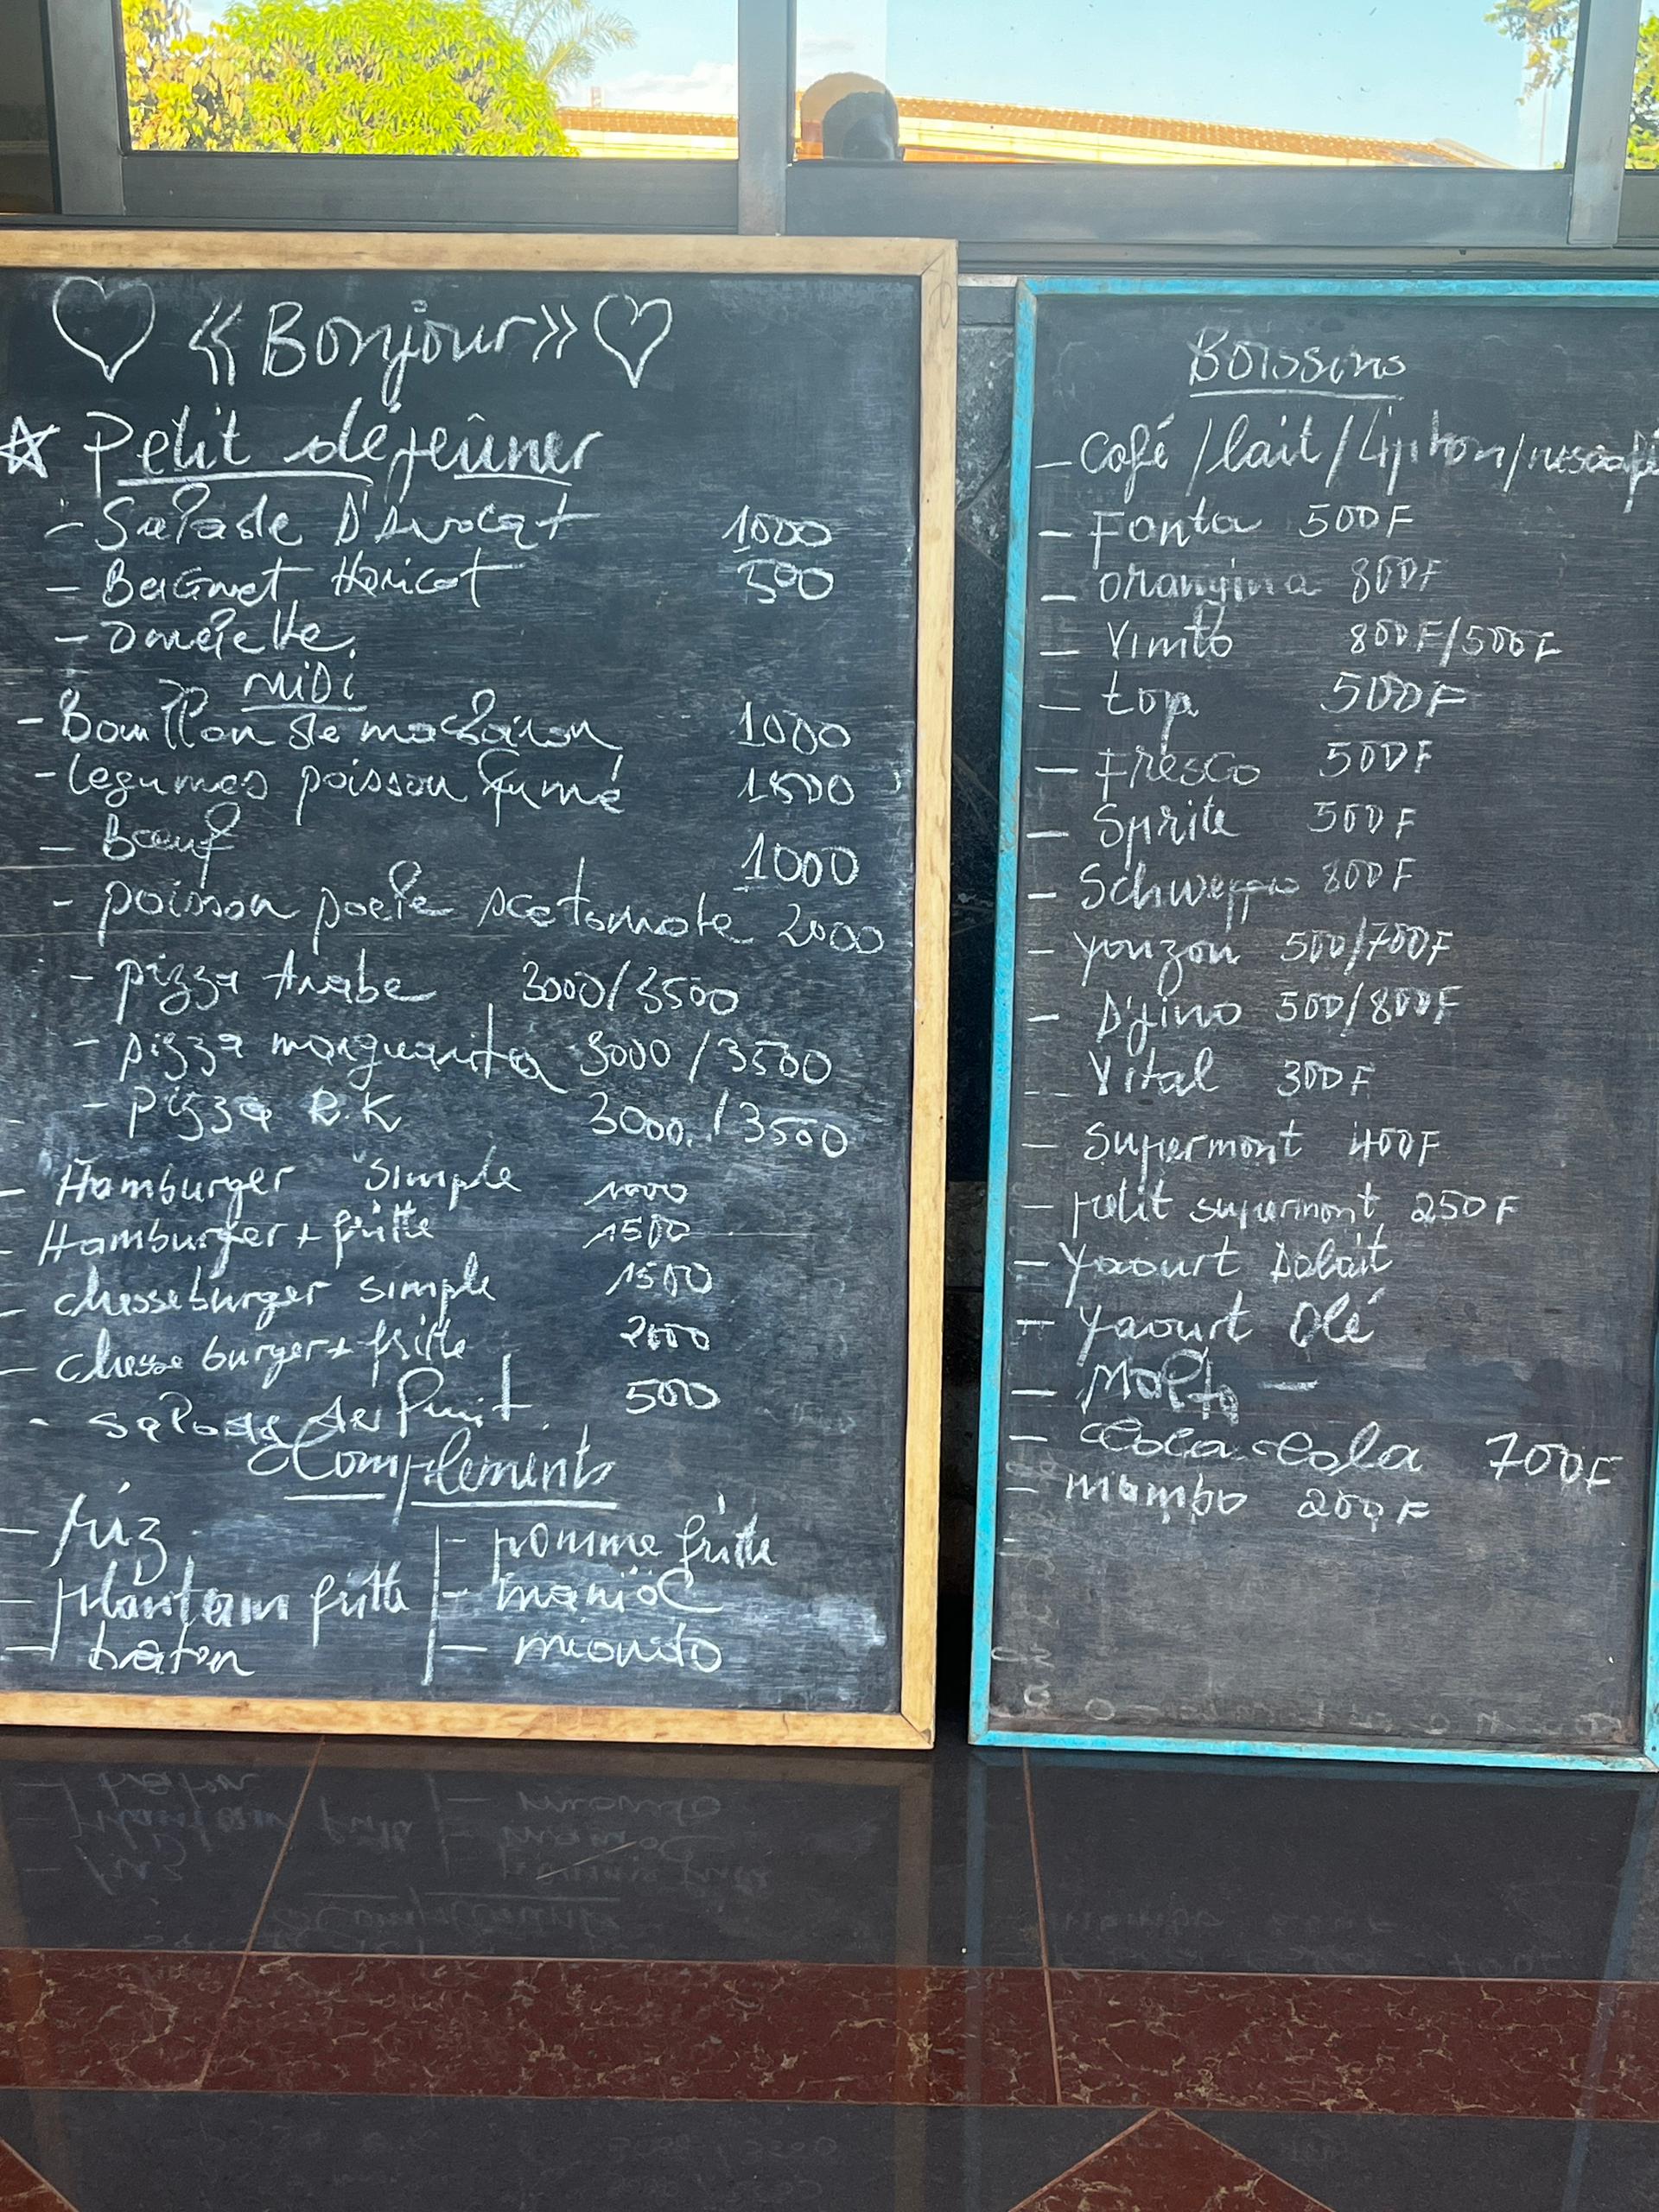 « Bonjour »
Petit déjeûner
- Salade D'Avocat 1000
- BeiGnet Haricot 500
- Omelette.
MiDi
- Bouillon de mochoiron 1000
- legumes poisson fumé 1500
- Bœuf 1000
- poisson poele scetomate 2000
- pizza Arabe 3000/3500
- pizza marguarita 3000/3500
- pizza R.K 3000./3500
- Hamburger simple 1000
- Hamburger + fritte 1500
- chesseburger simple 1500
- chesse burger + fritte 2000
- salade de fruit 500
Complements
- riz
- plantain fritte
- bâton
- pomme fritte
- manioc
- mionito
Boissons
- Café/lait/Liphon/nescafé
- Fanta 500F
- Orangina 800F
- Vimto 800F/500F
- top 500F
- Fresco 500F
- Sprite 500F
- Schwepps 800F
- youzou 500/700F
- D'jino 500/800F
- Vital 300F
- Supermont 400F
- petit supermont 250F
- Yaourt Dolait
- Yaourt Olé
- Malta -
- Coca-Cola 700F
- mambo 200F